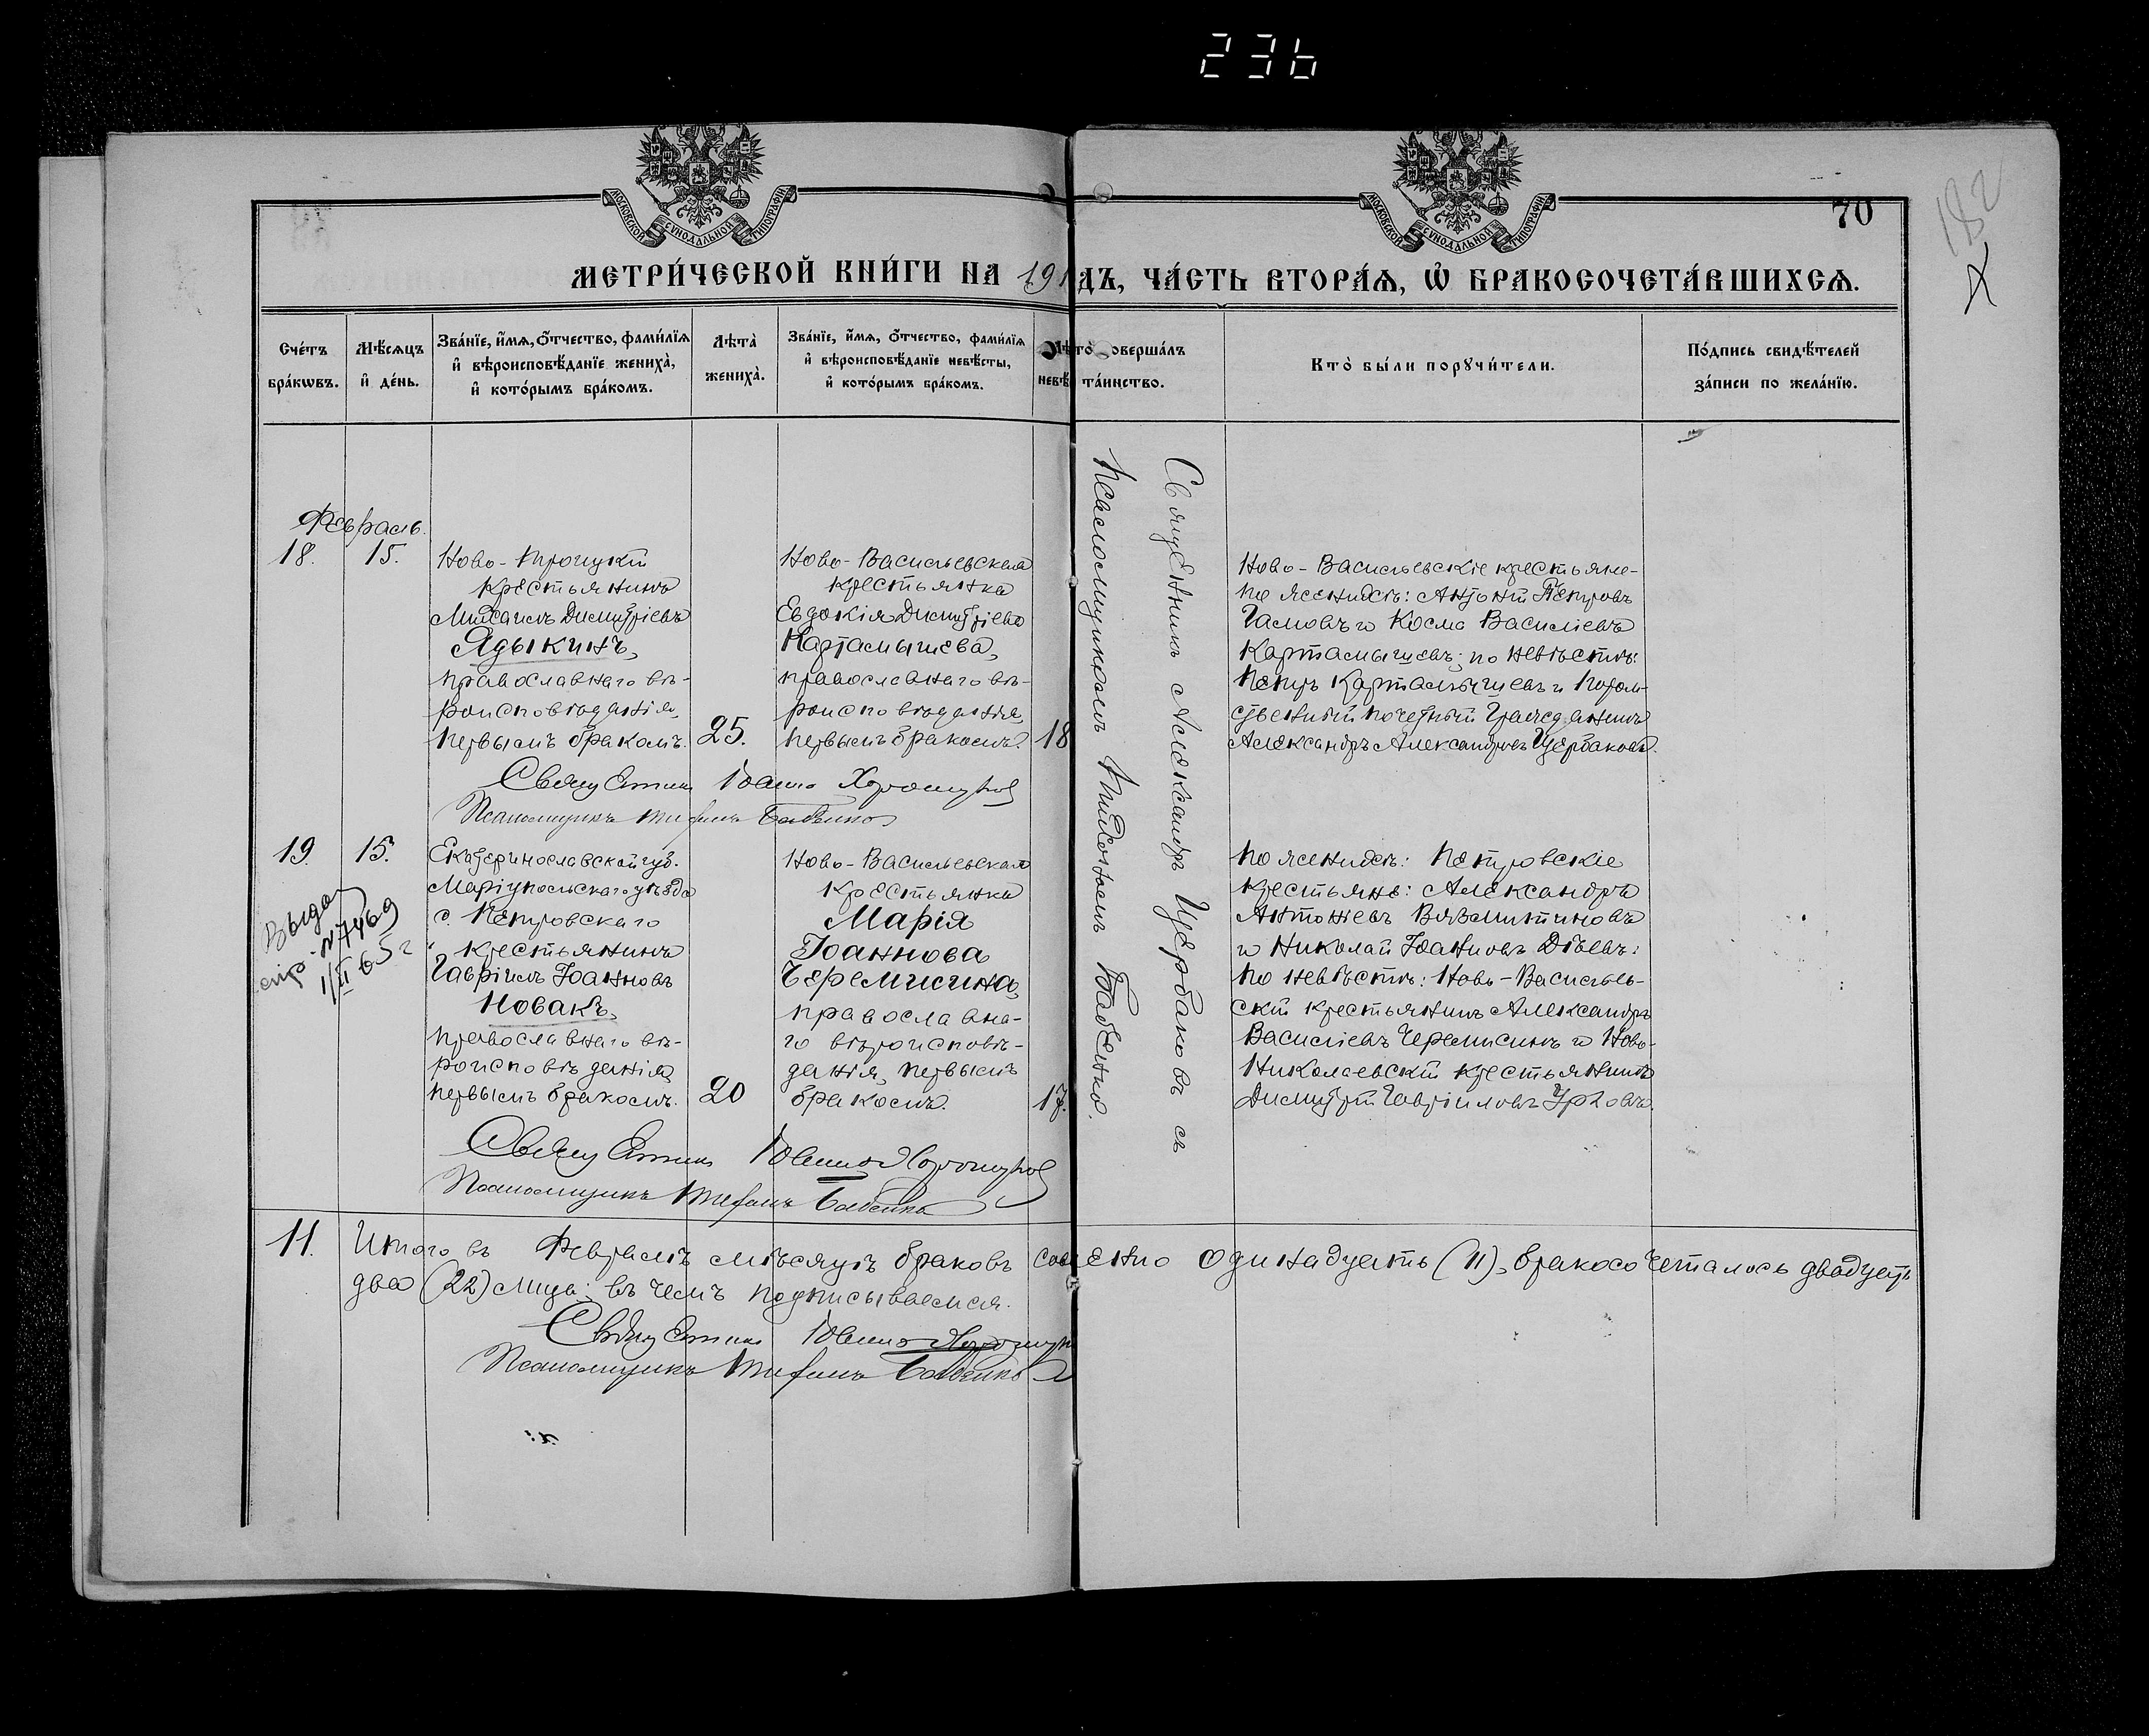 236
МОСКОВСКОЙ СУНОДАЛЬНОЙ ТИПОГРАФІИ
МОСКОВСКОЙ СУНОДАЛЬНОЙ ТИПОГРАФІИ
70
182
МЕТРИ́ЧЕСКОЙ КНИ́ГИ НА 191
ДЪ, ЧА́СТЬ ВТОРА́Ѧ, Ѽ БРАКОСОЧЕТА́ВШИХСѦ.
Сче́тъ бра́кѡвъ.
Мѣ́сѧцъ и҆ де́нь.
Зва́нїе, и҆́мѧ, ѻ҆́тчество, фами́лїѧ и҆ вѣроисповѣ́данїе жениха̀, и҆ кото́рымъ бра́комъ.
Лѣта̀ жениха̀.
Зва́нїе, и҆́мѧ, ѻ҆́тчество, фами́лїѧ и҆ вѣроисповѣ́данїе невѣ́сты, и҆ кото́рымъ бра́комъ.
невѣ
оверша́лъ
та́инство.
Кто̀ бы́ли порꙋчи́тели.
По́дпись свидѣ́телей за́писи по жела́нїю.
Февраль.
18.
15.
Ново-Троицкій
крестьянинъ
Михаилъ Димитріевъ
Ядыкинъ,
православнаго вѣ-
роисповѣданія,
первымъ бракомъ.
25.
Ново-Васильевская
крестьянка
Евдокія Димитріева
Картамышева,
православнаго вѣ-
роисповѣданія,
первымъ бракомъ.
18
Священникъ Александръ Щербаковъ съ
псаломщикомъ Бабенко.
Ново-Васильевскіе крестьяне-
по женихѣ: Антоній Петровъ
Галовъ и Косма Василіевъ
Картамышевъ; по невѣстѣ:
Петръ Картамышевъ и Потом-
ственный почетный гражданинъ
Александръ Александровъ Щербаковъ.
Священникъ Іоаннъ
Псаломщикъ Бабенко
19.
15.
Екатеринославской губ.
Маріупольскаго уѣзда
с. Петровскаго
крестьянинъ
Гавріилъ Іоанновъ
Новакъ,
православнаго вѣ-
роисповѣданія,
первымъ бракомъ.
20
Ново-Васильевская
крестьянка
Марія
Іоаннова
Черемисина,
православна-
го вѣроисповѣ-
данія, первымъ
бракомъ.
17.
По женихѣ: Петровскіе
крестьяне: Александръ
Антоніевъ Вязмитиновъ
и Николай Іоанновъ Дѣевъ:
по невѣстѣ: Ново-Васильев-
скій крестьянинъ Александръ
Василіевъ Черемисинъ и Ново-
Николаевскій крестьянинъ
Димитрій Гавріиловъ
Выда
спр. №7469
1/II 65 г
Священникъ Іоаннъ
Псаломщикъ Бабенко
11.
Итого въ Февралѣ мѣсяцѣ браковъ сов ено одинадцать (11), бракосочеталось двадцать
два (22) лица; въ чемъ подписываемся.
Священникъ Іоаннъ
Псаломщикъ Бабенко